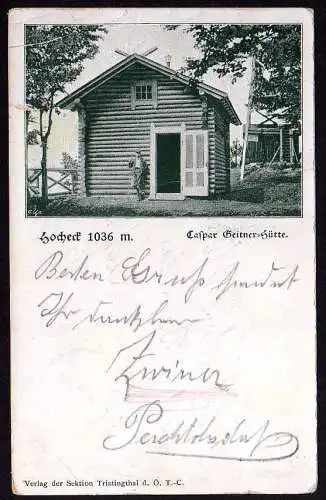 Hocheck 1036 m. Caspar Geitner-Hütte.
Besten Gruß sendet
Ihr dankbarer
Zwiner
Perchtoldsdorf
Verlag der Sektion Tristingthal d. Ö. T.-C.